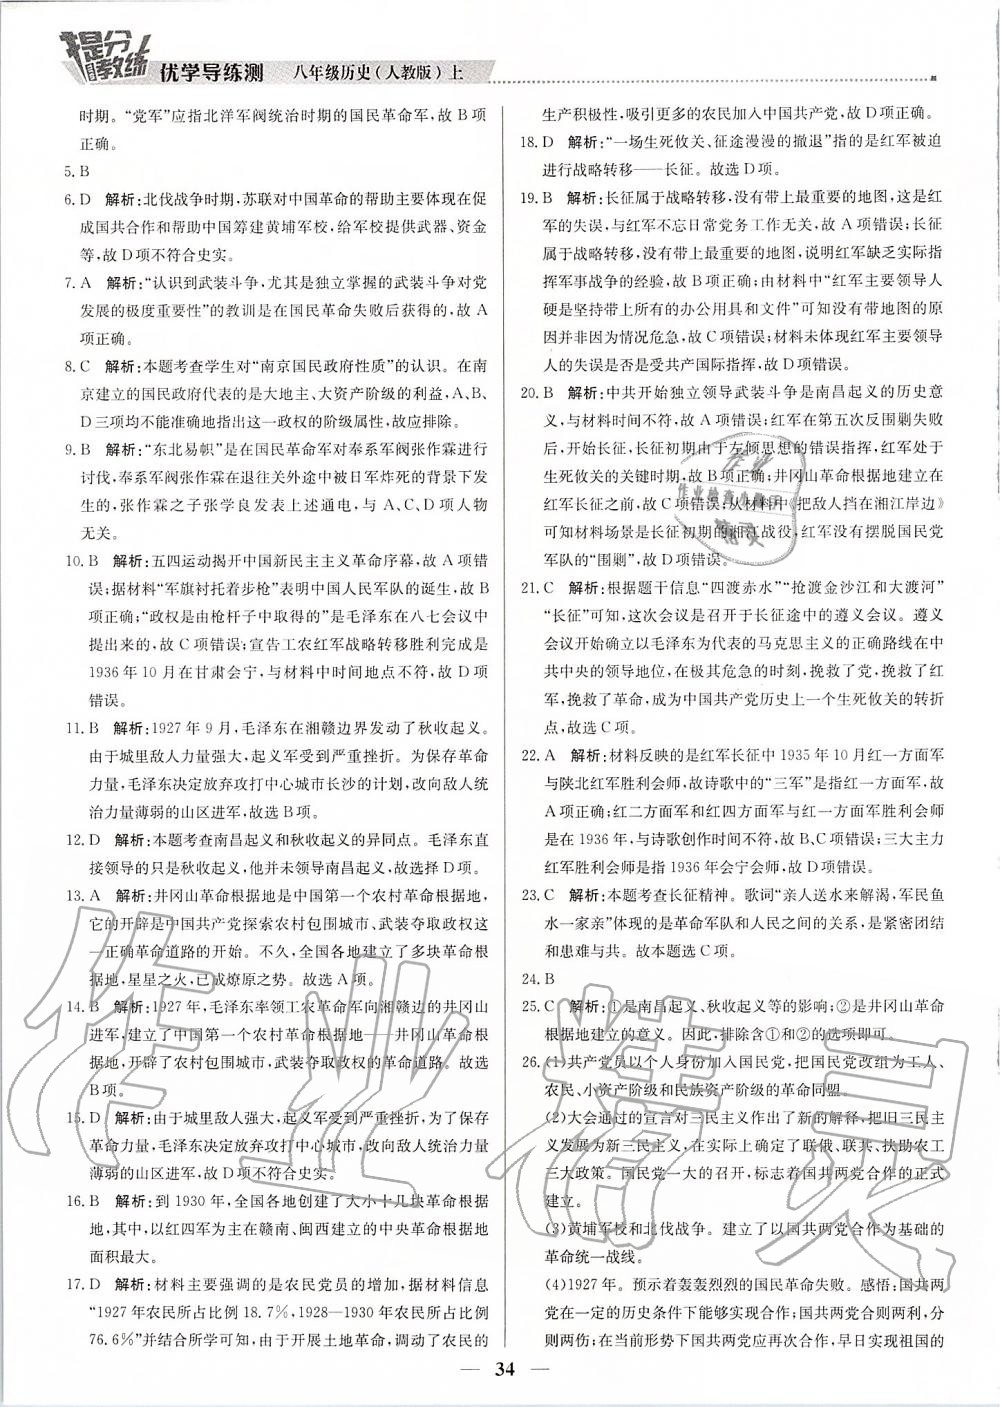 提分教练
优学导练测 八年级历史(人教版)上
时期。“党军”应指北洋军阀统治时期的国民革命军,故 B 项
正确。
5. B
6. D 解析:北伐战争时期,苏联对中国革命的帮助主要体现在促
成国共合作和帮助中国筹建黄埔军校,给军校提供武器、资金
等,故 D 项不符合史实。
7. A 解析:“认识到武装斗争,尤其是独立掌握的武装斗争对党
发展的极度重要性”的教训是在国民革命失败后获得的,故 A
项正确。
8. C 解析:本题考查学生对“南京国民政府性质”的认识。在南
京建立的国民政府代表的是大地主、大资产阶级的利益,A、B、
D 三项均不能准确地指出这一政权的阶级属性,故应排除。
9. B 解析:“东北易帜”是在国民革命军对奉系军阀张作霖进行
讨伐,奉系军阀张作霖在退往关外途中被日军炸死的背景下发
生的,张作霖之子张学良发表上述通电,与 A、C、D 项人物
无关。
10. B 解析:五四运动揭开中国新民主主义革命序幕,故 A 项错
误;据材料“军旗衬托着步枪”表明中国人民军队的诞生,故 B
项正确;“政权是由枪杆子中取得的”是毛泽东在八七会议中
提出来的,故 C 项错误;宣告工农红军战略转移胜利完成是
1936 年 10 月在甘肃会宁,与材料中时间地点不符,故 D 项
错误。
11. B 解析:1927 年 9 月,毛泽东在湘赣边界发动了秋收起义。
由于城里敌人力量强大,起义军受到严重挫折。为保存革命
力量,毛泽东决定放弃攻打中心城市长沙的计划,改向敌人统
治力量薄弱的山区进军,故选 B 项。
12. D 解析:本题考查南昌起义和秋收起义的异同点。毛泽东直
接领导的只是秋收起义,他并未领导南昌起义,故选择 D 项。
13. A 解析:井冈山革命根据地是中国第一个农村革命根据地,
它的开辟是中国共产党探索农村包围城市、武装夺取政权这
一正确革命道路的开始。不久,全国各地建立了多块革命根
据地,星星之火,已成燎原之势。故选 A 项。
14. B 解析:1927 年,毛泽东率领工农革命军向湘赣边的井冈山
进军,建立了中国第一个农村革命根据地——井冈山革命根
据地,开辟了农村包围城市,武装夺取政权的革命道路。故选
B 项。
15. D 解析:由于城里敌人强大,起义军受到严重挫折。为保存
革命力量,毛泽东决定放弃攻打中心城市,改向敌人统治力量
薄弱的山区进军,故 D 项不符合史实。
16. B 解析:到 1930 年,全国各地创建了大小十几块革命根据
地,其中,以红四军为主在赣南、闽西建立的中央革命根据地
面积最大。
17. D 解析:材料主要强调的是农民党员的增加,据材料信息
“1927 年农民所占比例 18.7%,1928—1930 年农民所占比例
76.6%”并结合所学可知,由于开展土地革命,调动了农民的
生产积极性,吸引更多的农民加入中国共产党,故 D 项正确。
18. D 解析:“一场生死攸关、征途漫漫的撤退”指的是红军被迫
进行战略转移——长征。故选 D 项。
19. B 解析:长征属于战略转移,没有带上最重要的地图,这是红
军的失误,与红军不忘日常党务工作无关,故 A 项错误;长征
属于战略转移,没有带上最重要的地图,说明红军缺乏实际指
挥军事战争的经验,故 B 项正确;由材料中“红军主要领导人
硬是坚持带上所有的办公用具和文件”可知没有带地图的原
因并非因为情况危急,故 C 项错误;材料未体现红军主要领导
人的失误是否是受共产国际指挥,故 D 项错误。
20. B 解析:中共开始独立领导武装斗争是南昌起义的历史意
义,与材料时间不符,故 A 项错误;红军在第五次反围剿失败
后,开始长征,长征初期由于左倾思想的错误指挥,红军处于
生死攸关的关键时期,故 B 项正确;井冈山革命根据地的建立
在红军长征之前,故 C 项错误;从材料中《把敌人挡在湘江岸边》
可知材料场景是长征初期的湘江战役,红军没有摆脱国民党
军队的“围剿”,故 D 项错误。
21. C 解析:根据题干信息“四渡赤水”“抢渡金沙江和大渡河”
“长征”可知,这次会议是召开于长征途中的遵义会议。遵义
会议开始确立以毛泽东为代表的马克思主义的正确路线在中
共中央的领导地位,在极其危急的时刻,挽救了党,挽救了红
军,挽救了革命,成为中国共产党历史上一个生死攸关的转折
点,故选 C 项。
22. A 解析:材料反映的是红军长征中 1935 年 10 月红一方面军
与陕北红军胜利会师,故诗歌中的“三军”是指红一方面军,故
A 项正确;红二方面军和红四方面军与红一方面军胜利会师
是在 1936 年,与诗歌创作时间不符,故 B、C 项错误;三大主力
红军胜利会师是指 1936 年会宁会师,故 D 项错误。
23. C 解析:本题考查长征精神。歌词“亲人送水来解渴,军民鱼
水一家亲”体现的是革命军队和人民之间的关系,是紧密团结
和患难与共。故本题选 C 项。
24. B
25. C 解析:①是南昌起义、秋收起义等的影响;②是井冈山革命
根据地建立的意义。因此,排除含①和②的选项即可。
26. (1)共产党员以个人身份加入国民党,把国民党改组为工人、
农民、小资产阶级和民族资产阶级的革命同盟。
(2)大会通过的宣言对三民主义作出了新的解释,把旧三民主
义发展为新三民主义,在实际上确定了联俄、联共、扶助农工
三大政策。国民党一大的召开,标志着国共两党合作的正式
建立。
(3)黄埔军校和北伐战争。建立了以国共两党合作为基础的
革命统一战线。
(4)1927 年。预示着轰轰烈烈的国民革命失败。感悟:国共两
党在一定的历史条件下能够实现合作;国共两党合则两利,分
则两伤;在当前形势下国共两党应再次合作,早日实现祖国的
— 34 —
作业精灵